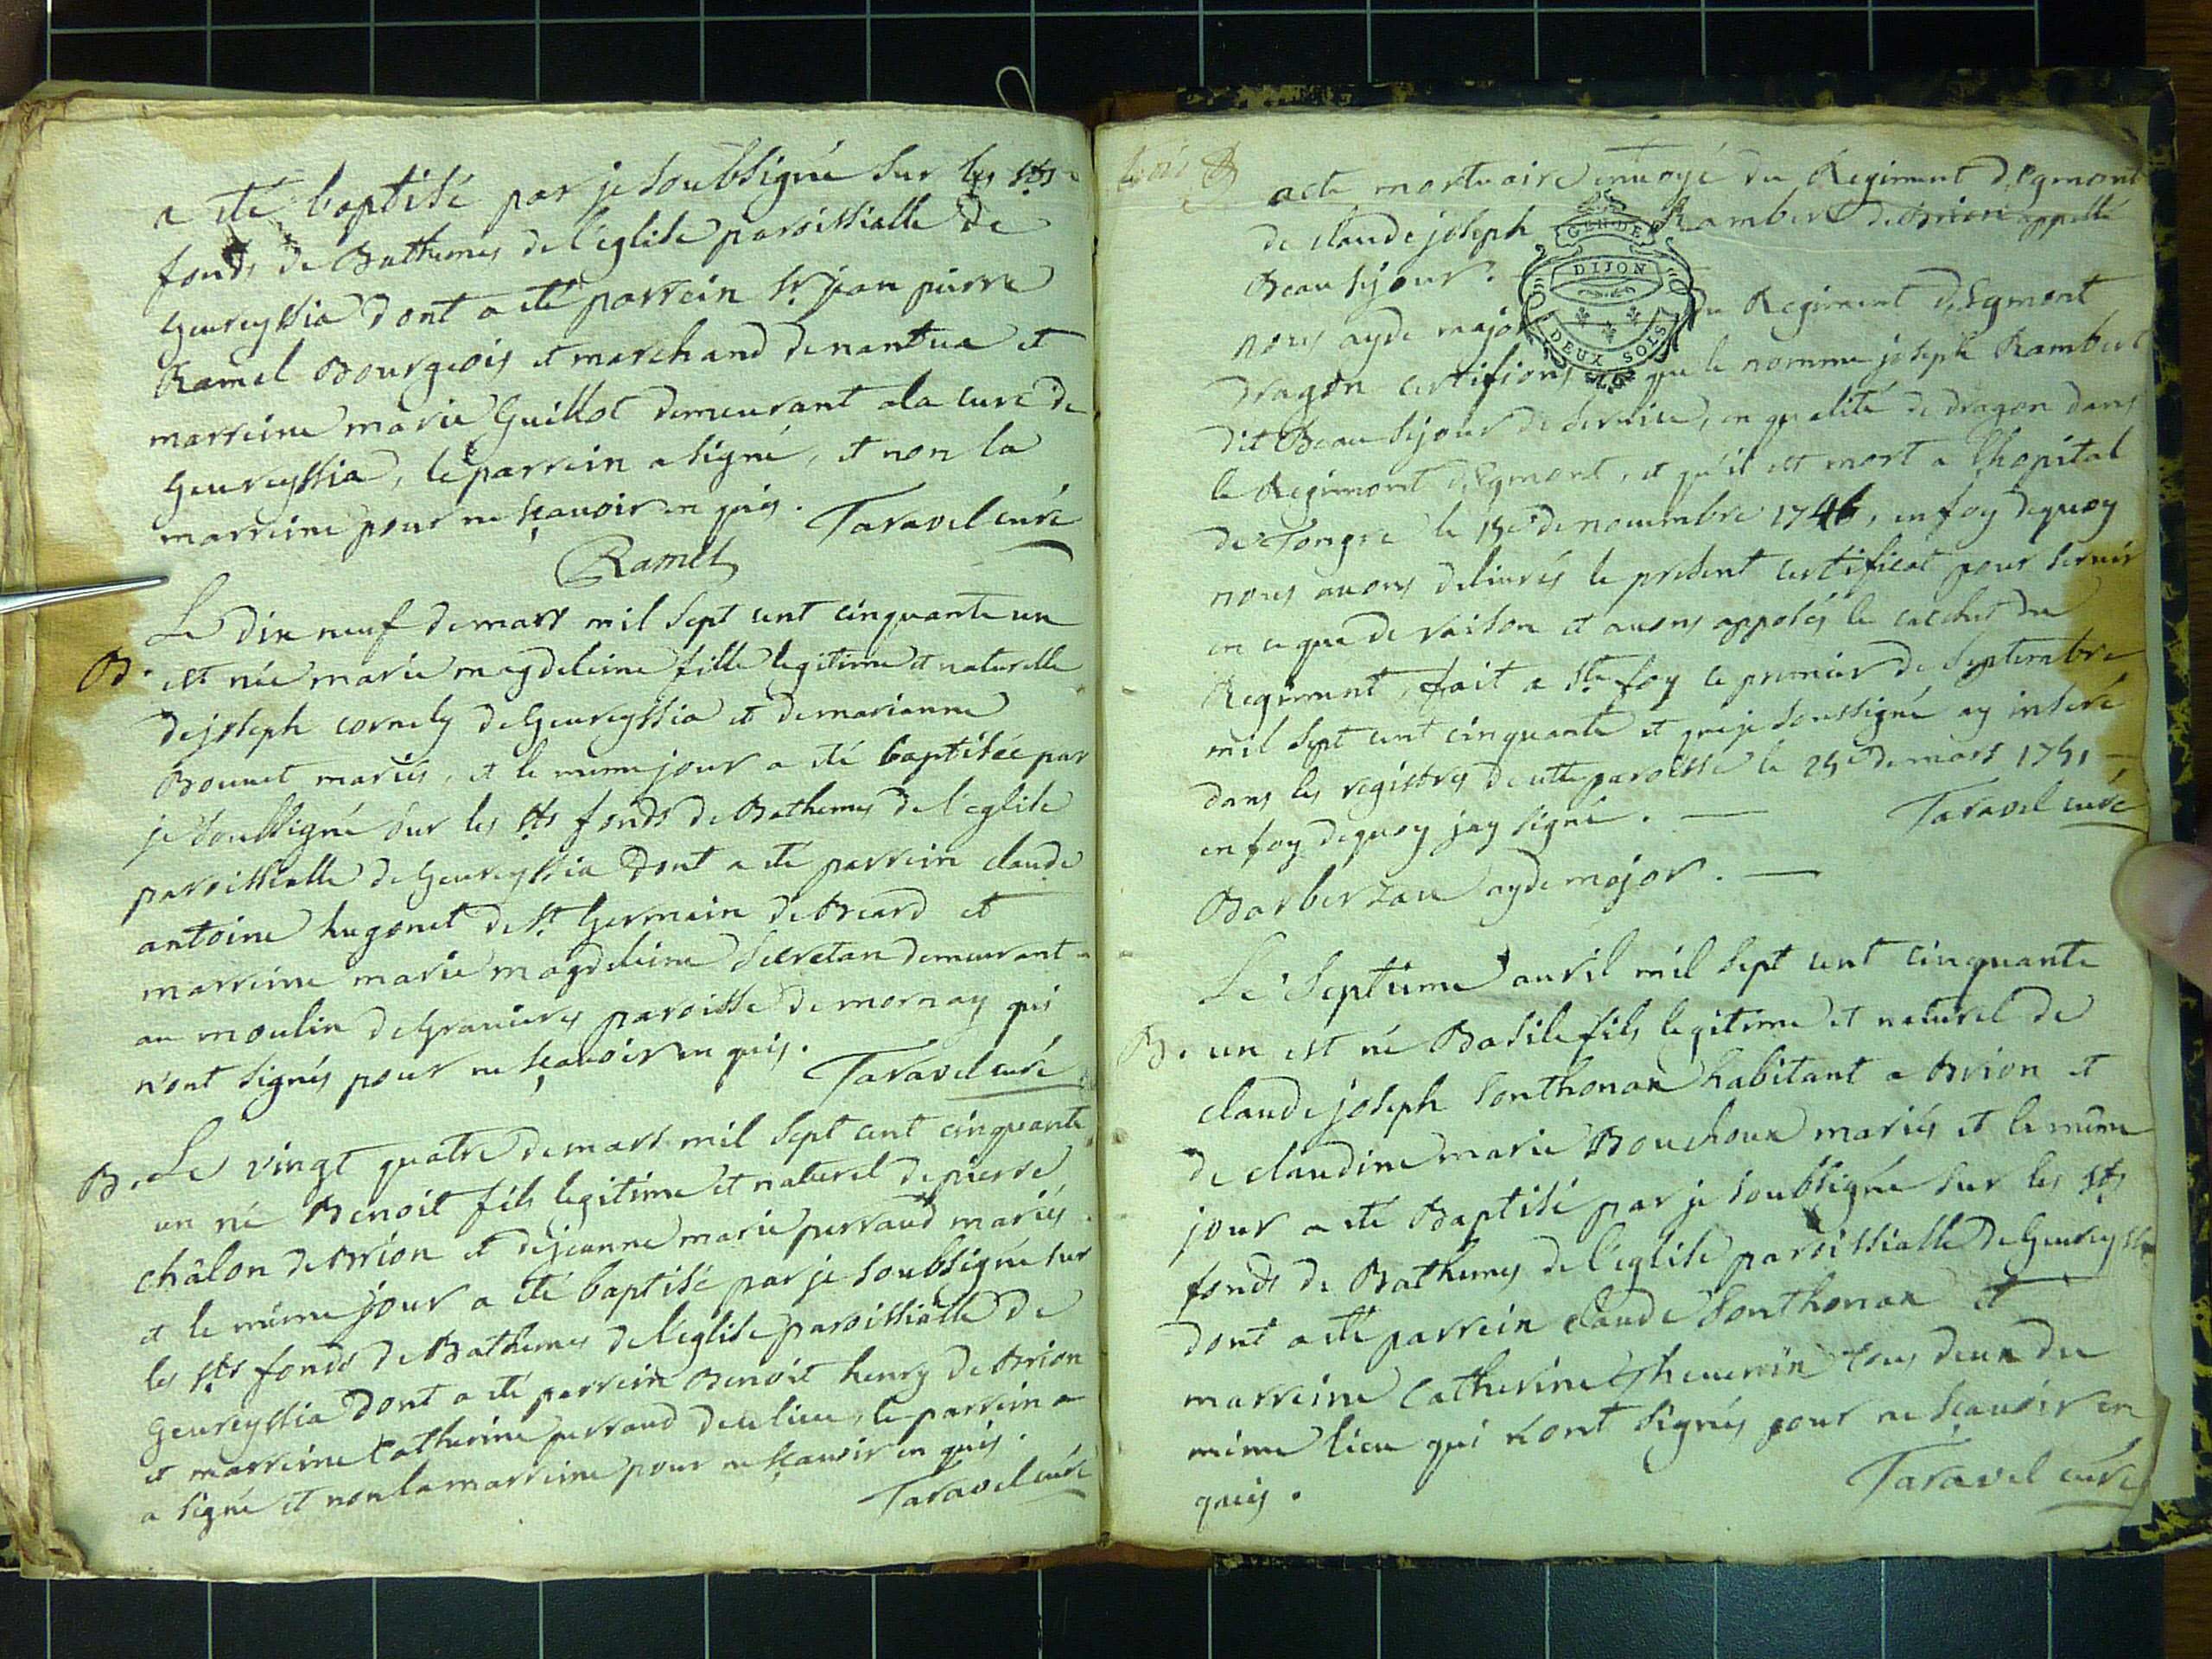 a eté baptisé par je soubsigné sur les sts
fonds de Bathemes de l'eglise paroissialle de
Geureyssia dont a eté parrein Sr jean pierre
Ramel Bourgeois et marchand de nantua et
marreine marie Guillot demeurant a la cure de
Geureyssia, le parrein a signé, et non la
marreine pour ne sçavoir en quis. Taravel curé
Ramel
Le dix neuf de mars mil sept cent cinquante un
B. est née marie magdeleine fille legitime et naturelle
de joseph cornely de Geureyssia et de marianne
Bounet mariés, et le meme jour a eté baptisée par
je soubsigné sur les sts fonds de Bathemes de l'eglise
paroissialle de Geureyssia dont a eté parrein claude
antoine hugonet de St Germain de Beard et
marreine marie magdeleine secretan demeurant
au moulin de Granieres paroisse de mornay qui
n'ont signés pour ne sçavoir en quis.
Taravel curé
B. Le vingt quatre de mars mil sept cent cinquante
un né Benoit fils legitime et naturel de pierre
châlon de Brion et de jeanne marie perraud mariés
et le même jour a eté baptisé par je soubsigné sur
les sts fonds de Bathemes de l'eglise paroissialle de
Geureyssia dont a eté parrein Benoit henry de Brion
et marreine Catherine perraud de ce lieu, le parrein a
a signé et non la marreine pour ne sçavoir en quis.
Taravel curé
acte mortuaire envoyé du Regiment d'Egmont
de claude joseph Rambert de Brion appellé
Beau sejour.
GEN. DE
DIJON
DEUX SOLS
nous ayde major du Regiment d'Egmont
dragon certifions que le nomme joseph Rambert
dit Beau sejour de service, en qualité de dragon dans
le Regiment d'Egmont, et qu'il est mort a l'hopital
de Tongre le 15e de novembre 1746, en foy de quoy
nous avons delivrés le present certificat pour servir
en ce que de raison et avons apposés le cachet du
Regiment, fait a ste foy le premier de Septembre
mil sept cent cinquante et que je soussigné ay inseré
dans les registres de cette paroisse le 25e de mars 1751
en foy de quoy jay signé. Taravel curé
Barberzau ayde major.
Le Septieme avril mil sept cent cinquante
B. un est né Basile fils legitime et naturel de
claude joseph Sonthonax habitant a Brion et
de claudine marie Bouchoux mariés et le même
jour a eté Baptisé par je soubsigné sur les sts
fonds de Bathemes de l'eglise paroissialle de Geureyssia
dont a eté parrein claude Sonthonax et
marreine Catherine Thevenin tous deux du
même lieu qui n'ont signés pour ne sçavoir en
quis.
Taravel curé